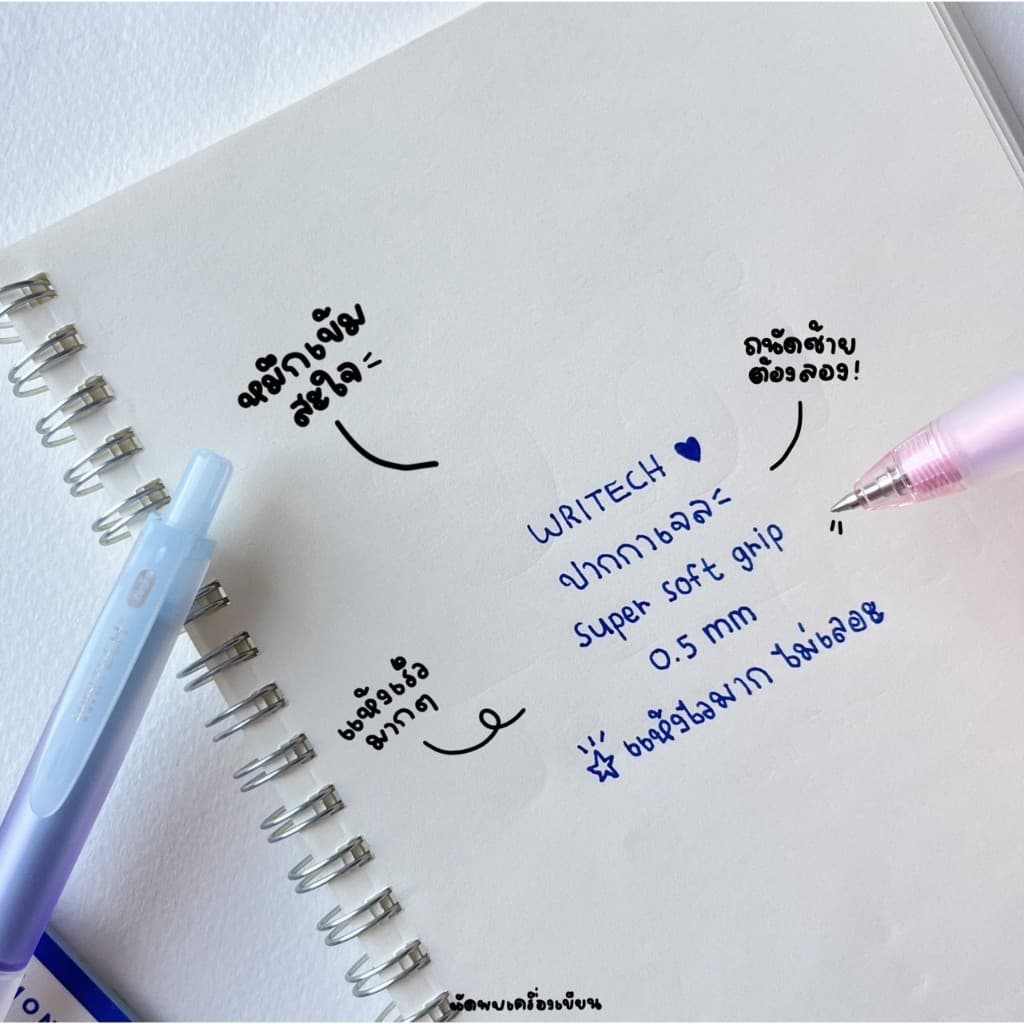 หมึกเข้ม
สะใจ
ถนัดซ้าย
ต้องลอง!
WRITECH
ปากกาเจละ
super soft grip
0.5 mm
แห้งไวมาก ไม่เลอะ
แห้งเร็ว
มากๆ
WRITECH
นัดพบเครื่องเขียน